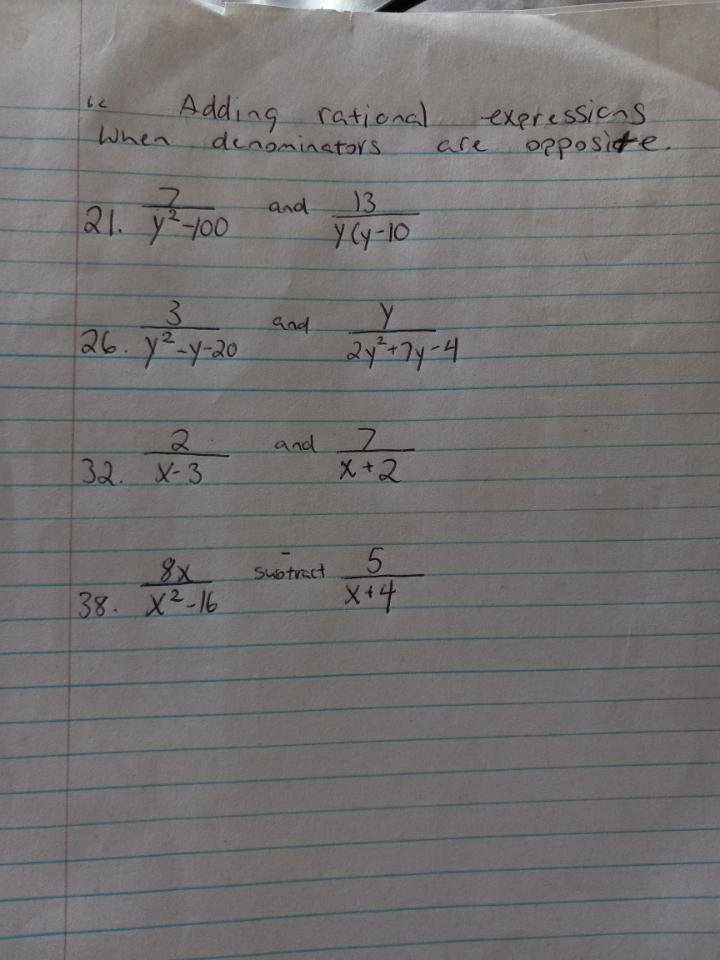 6.2 Adding rational expressions
When denominators are opposite.
21. 7/(y²-100) and 13/(y(y-10
26. 3/(y²-y-20) and y/(2y²+7y-4)
32. 2/(x-3) and 7/(x+2)
38. 8x/(x²-16) - subtract 5/(x+4)